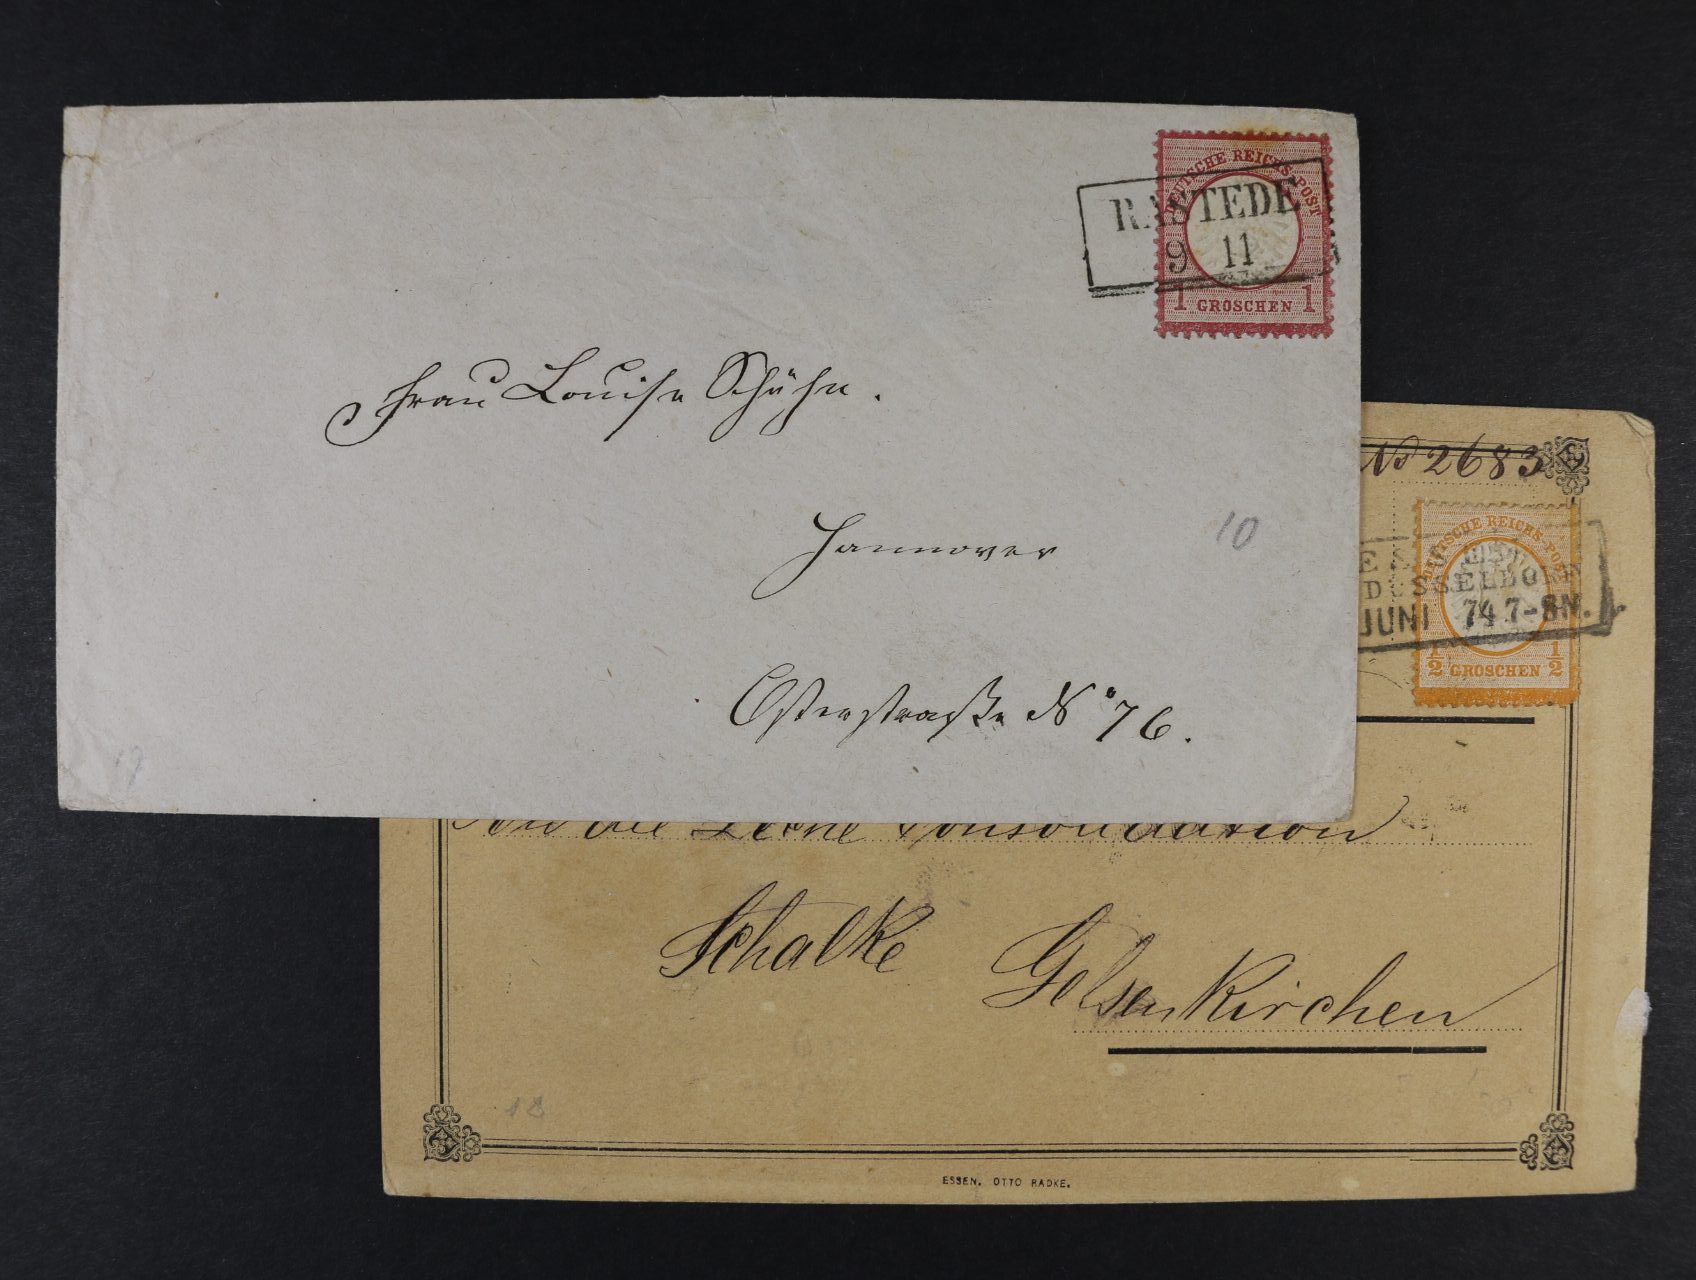 DEUTSCHE REICHS-POST
RASTEDE
9 11
1 GROSCHEN 1
Frau Louise Schühe.
Hannover
10
Osterstraße No 76.
17
No 2683
DEUTSCHE REICHS-POST
DÜSSELDORF
JUNI 74 7-8N.
1/2 GROSCHEN 1/2
die Zeche Consolidation
Schalke Gelsenkirchen
18
ESSEN. OTTO RADKE.